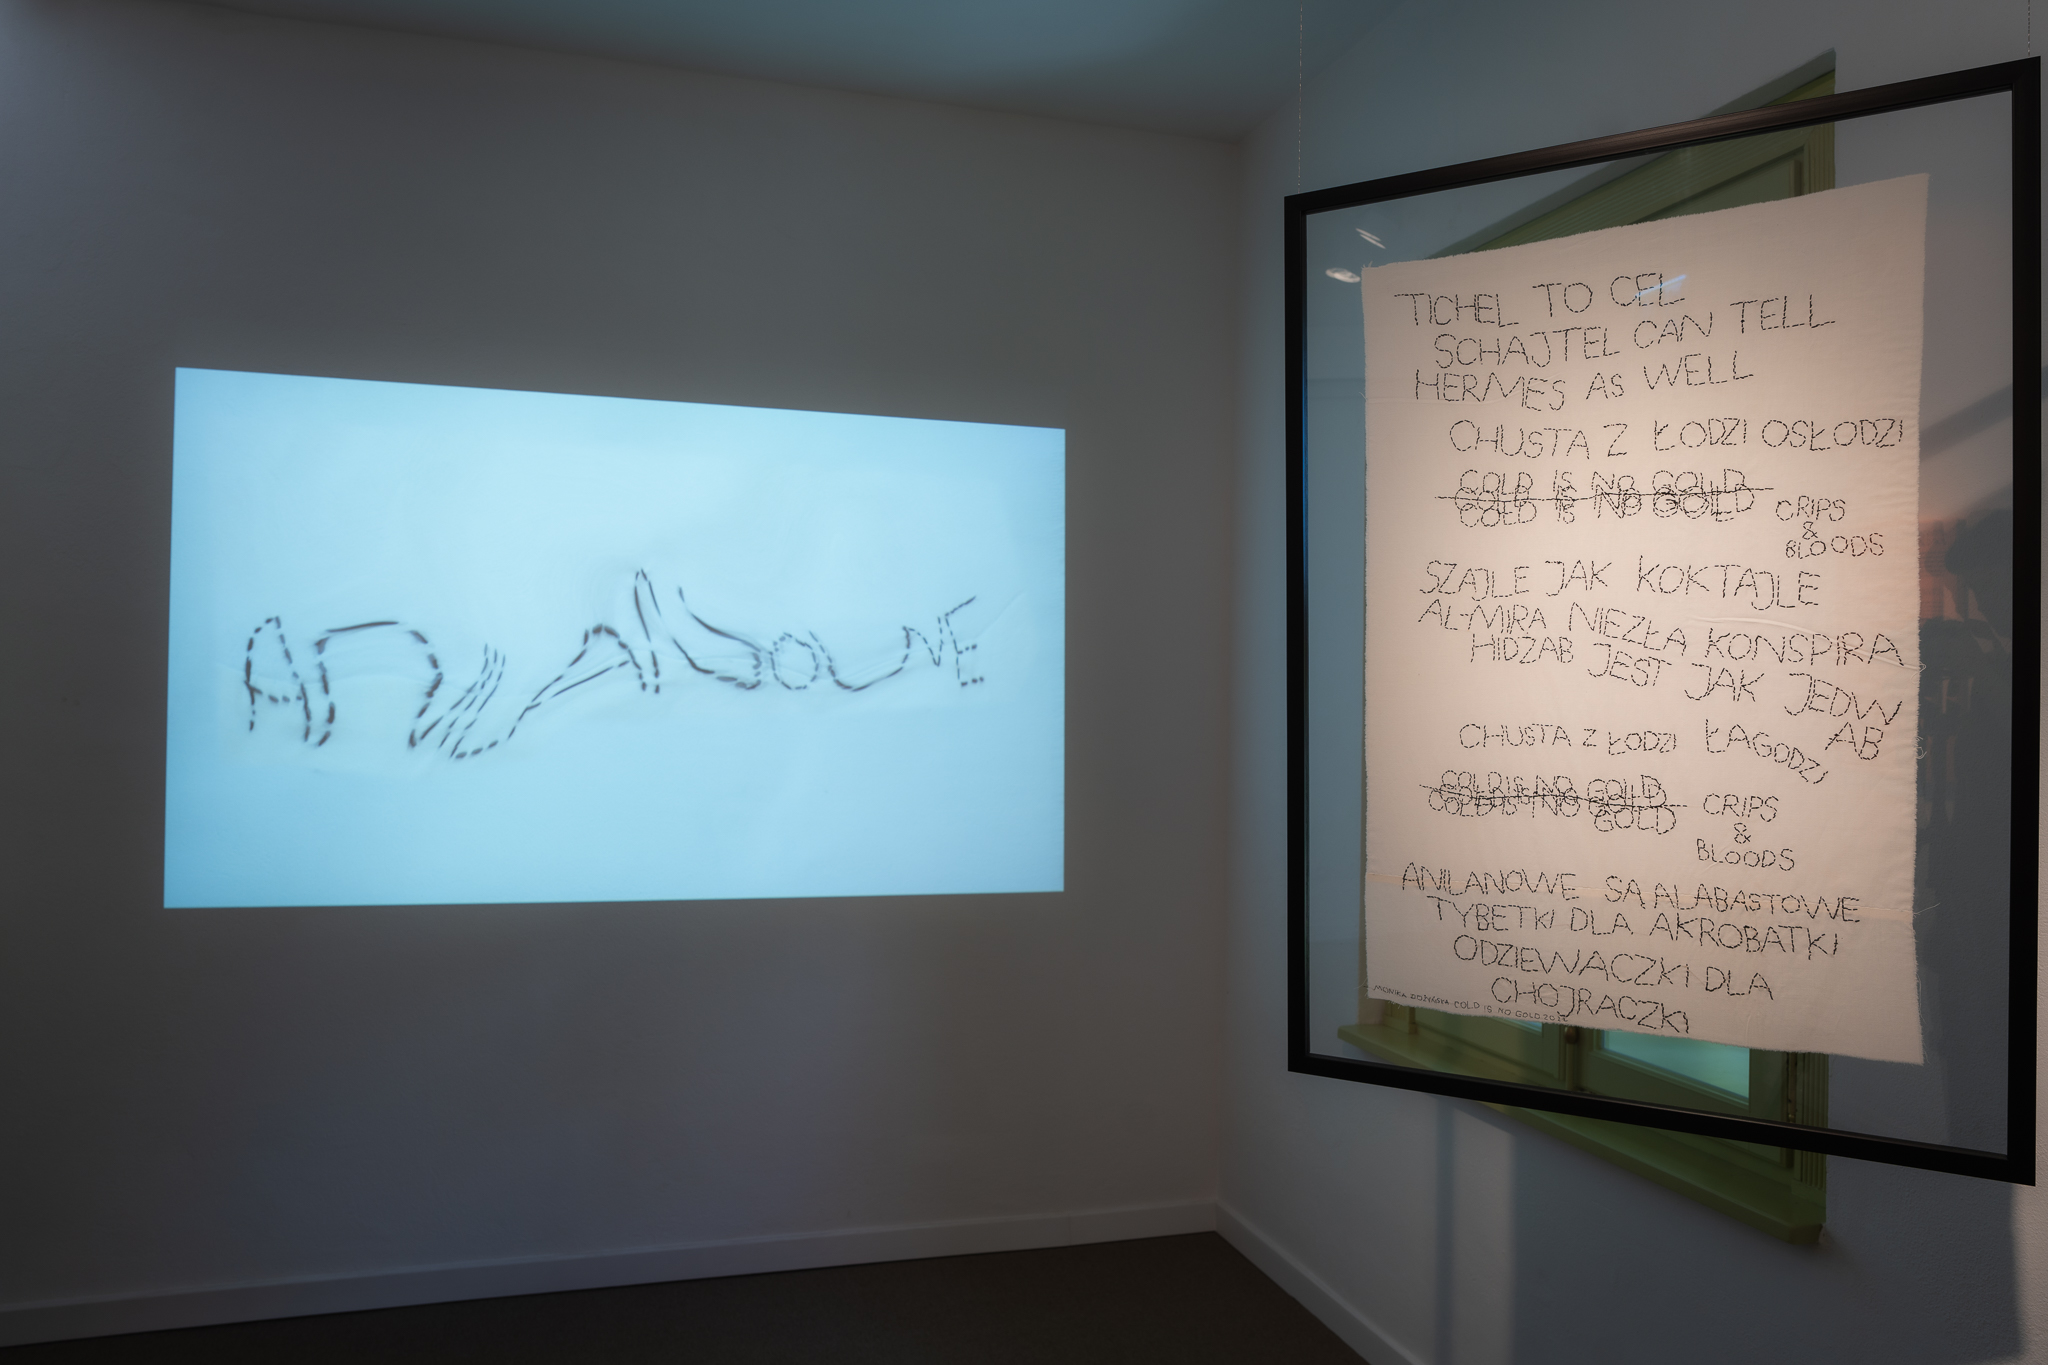 TICHEL TO CEL
SCHAJTEL CAN TELL
HERMES AS WELL
CHUSTA Z ŁODZI OSŁODZI
COLD IS NO GOLD
COLD IS NO GOLD
CRIPS
&
BLOODS
SZAJLE JAK KOKTAJLE
AL-MIRA NIEZŁA KONSPIRA
HIDŻAB JEST JAK JEDW
AB
CHUSTA Z ŁODZI ŁAGODZI
COLD IS NO GOLD
COLD IS NO GOLD
GOLD
CRIPS
&
BLOODS
ANILANOWE SĄ ALABASTOWE
TYBETKI DLA AKROBATKI
ODZIEWACZKI DLA
CHOJRACZKI
MONIKA COLD IS NO GOLD